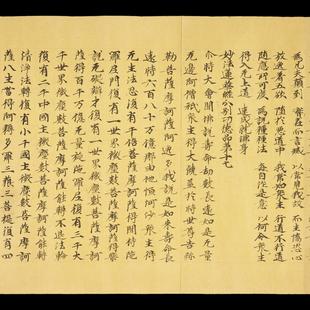 為凡夫顛倒 實在而言滅 以常見我故 而生憍恣心
放逸著五欲 墮於惡道中 我常知眾生 行道不行道
隨應所可度 為說種種法 每自作是意 以何令眾生
得入无上道 速成就佛身
妙法蓮華經分別功德品第十七
尒時大會聞佛說壽命劫數長遠如是无量
无邊阿僧祇眾生得大饒益於時世尊告弥
勒菩薩摩訶薩阿逸多我說是如來壽命長
遠時六百八十万億那由他恒河沙眾生得
无生法忍復有千倍菩薩摩訶薩得聞持陀
羅尼門復有一世界微塵數菩薩摩訶薩得樂
說无礙辯才復有一世界微塵數菩薩摩訶
薩得百千万億无量旋陀羅尼復有三千大
千世界微塵數菩薩摩訶薩能轉不退法輪
復有二千中國土微塵數菩薩摩訶薩能轉
清淨法輪復有小千國土微塵數菩薩摩訶
薩八生當得阿耨多羅三藐三菩提復有四